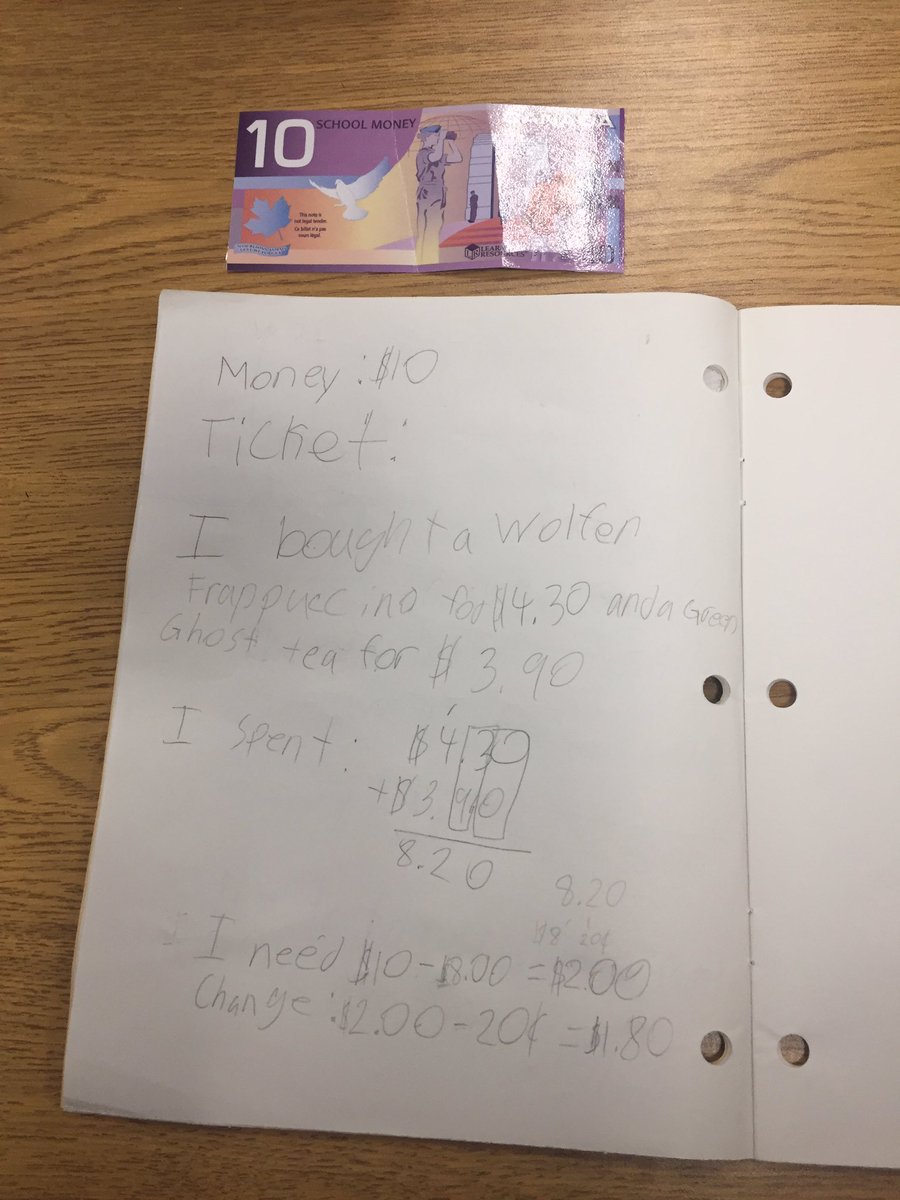 10 SCHOOL MONEY
This note is
not legal tender.
Ce billet n'a pas
cours légal.
LEAR
RESOURCES
Money: $10
Ticket:
I bought a Wolfen
Frappuccino for $4.30 and a Green
Ghost tea for $3.90
I spent: $4.30
+$3.90
8.20
8.20
$8 20¢
I need $10-$8.00 = $2.00
Change: $2.00-20¢ = $1.80